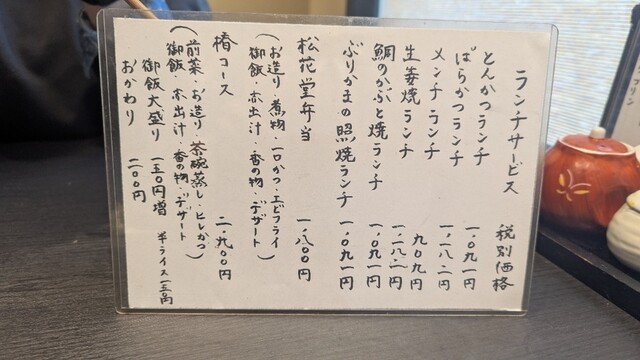 ランチサービス 税別価格
とんかつランチ 一、〇九一円
ばらかつランチ 一、一八二円
メンチランチ 九〇九円
生姜焼ランチ 一、一八二円
鯛のかぶと焼ランチ 一、〇九一円
ぶりかまの照焼ランチ 一、〇九一円
松花堂弁当 一、八〇〇円
(お造り 煮物 一口かつ・エビフライ
御飯・赤出汁・香の物・デザート)
椿コース 二、九〇〇円
(前菜・お造り 茶碗蒸し・ヒレかつ
御飯・赤出汁・香の物・デザート)
御飯大盛り 一五〇円増 半ライス一五〇円
おかわり 二〇〇円